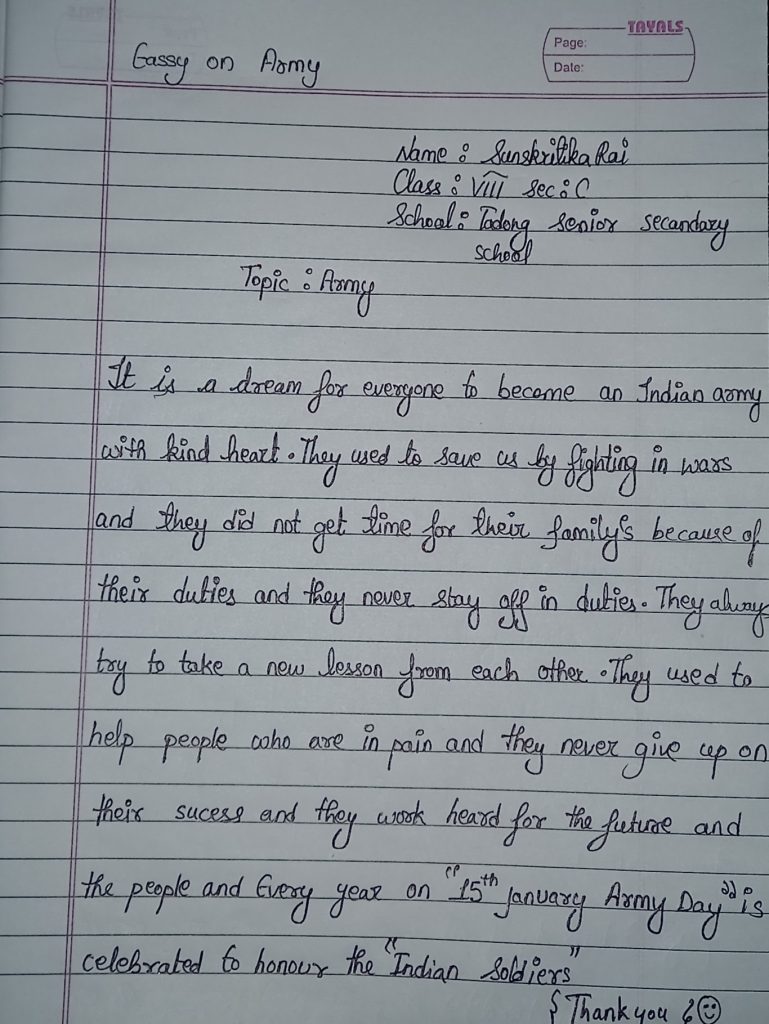 TAYALS
Page:
Date:
Eassy on Army
Name : Sunskritika Rai
Class : VIII sec : C
School : Tadong senior secandary
school
Topic : Army
It is a dream for everyone to become an Indian army
with kind heart. They used to save us by fighting in wars
and they did not get time for their family's because of
their duties and they never stay off in duties. They alway
try to take a new lesson from each other. They used to
help people who are in pain and they never give up on
their sucess and they work heard for the future and
the people and Every year on "15th january Army Day" is
celebrated to honour the "Indian Soldiers"
{ Thank you } ☺